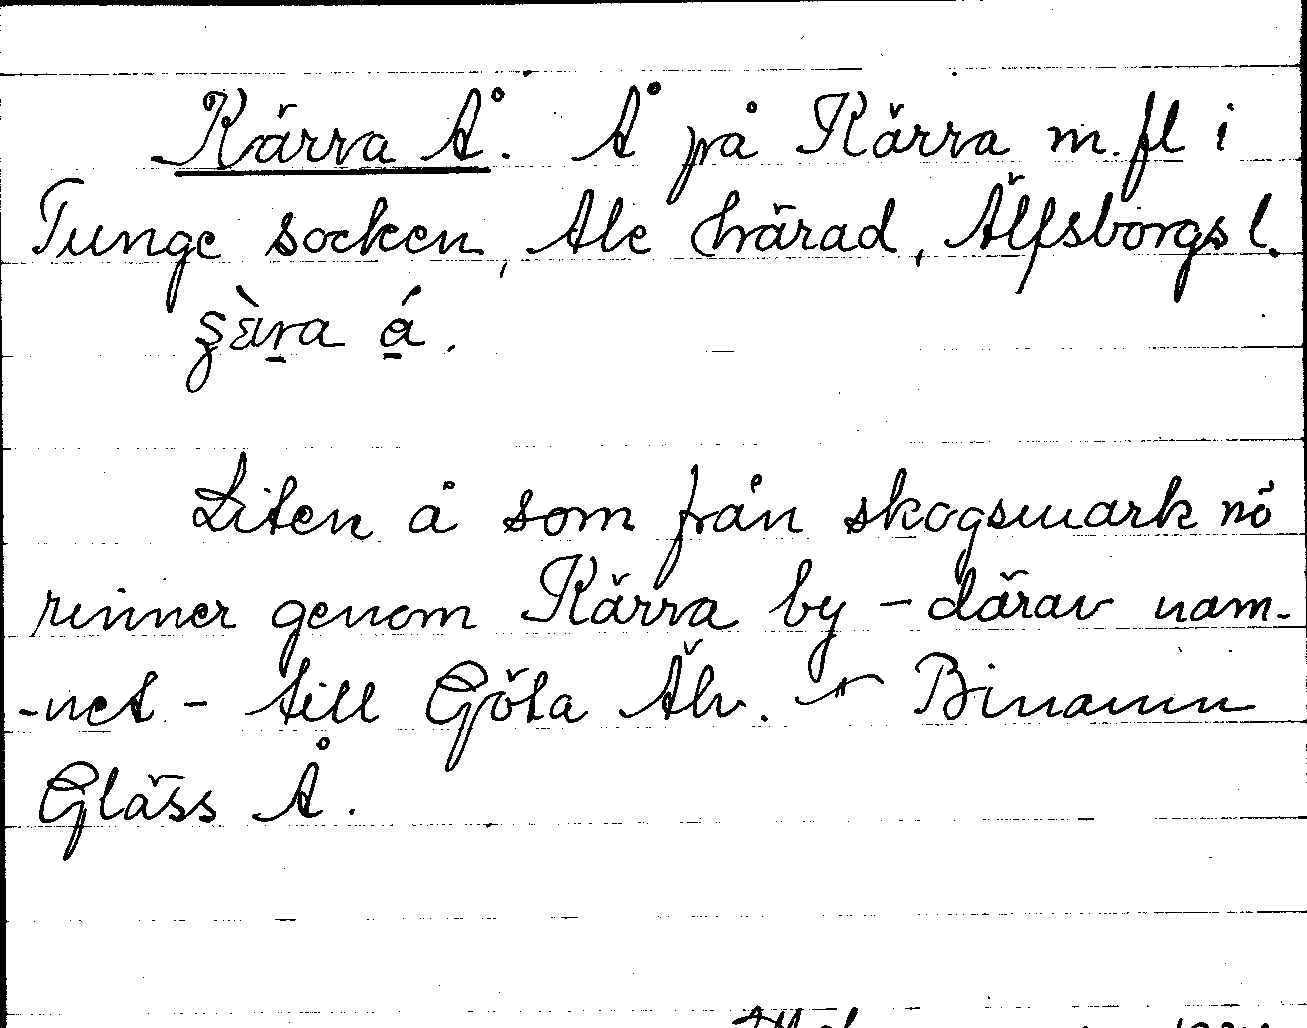 Kärra Å. Å på Kärra m.fl i
Tunge socken, Ale härad, Älfsborgs l.
Liten å som från skogsmark nö
rinner genom Kärra by - därav nam-
-net - till Göta Älv. Binamn
Gläss Å.